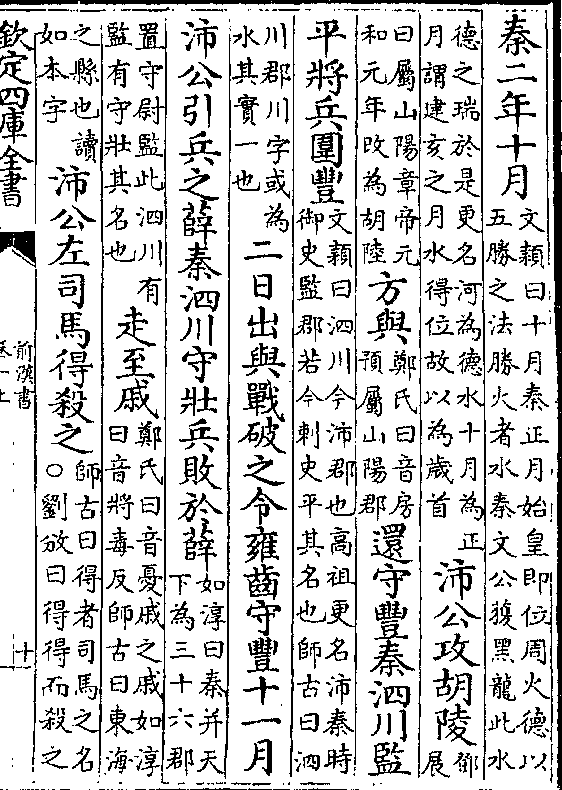 秦二年十月文頴曰十月秦正月始皇即位周火德以五勝之法勝火者水秦文公獲黑龍此水
德之瑞於是更名河為德水十月為正月謂建亥之月水得位故以為歲首沛公攻胡陵鄧展
曰屬山陽章帝元和元年改為胡陸方與鄭氏曰音房預屬山陽郡還守豐秦泗川監
平將兵圍豐文頴曰泗川今沛郡也高祖更名沛秦時御史監郡若今刺史平其名也師古曰泗
川郡川字或為水其實一也二日出與戰破之令雍齒守豐十一月
沛公引兵之薛秦泗川守壯兵敗於薛如淳曰秦并天下為三十六郡
置守尉監此泗川有監有守壯其名也走至戚鄭氏曰音憂戚之戚如淳曰音將毒反師古曰東海
之縣也讀如本字沛公左司馬得殺之師古曰得者司馬之名○劉攽曰得得而殺之
欽定四庫全書
前漢書
卷一上
十